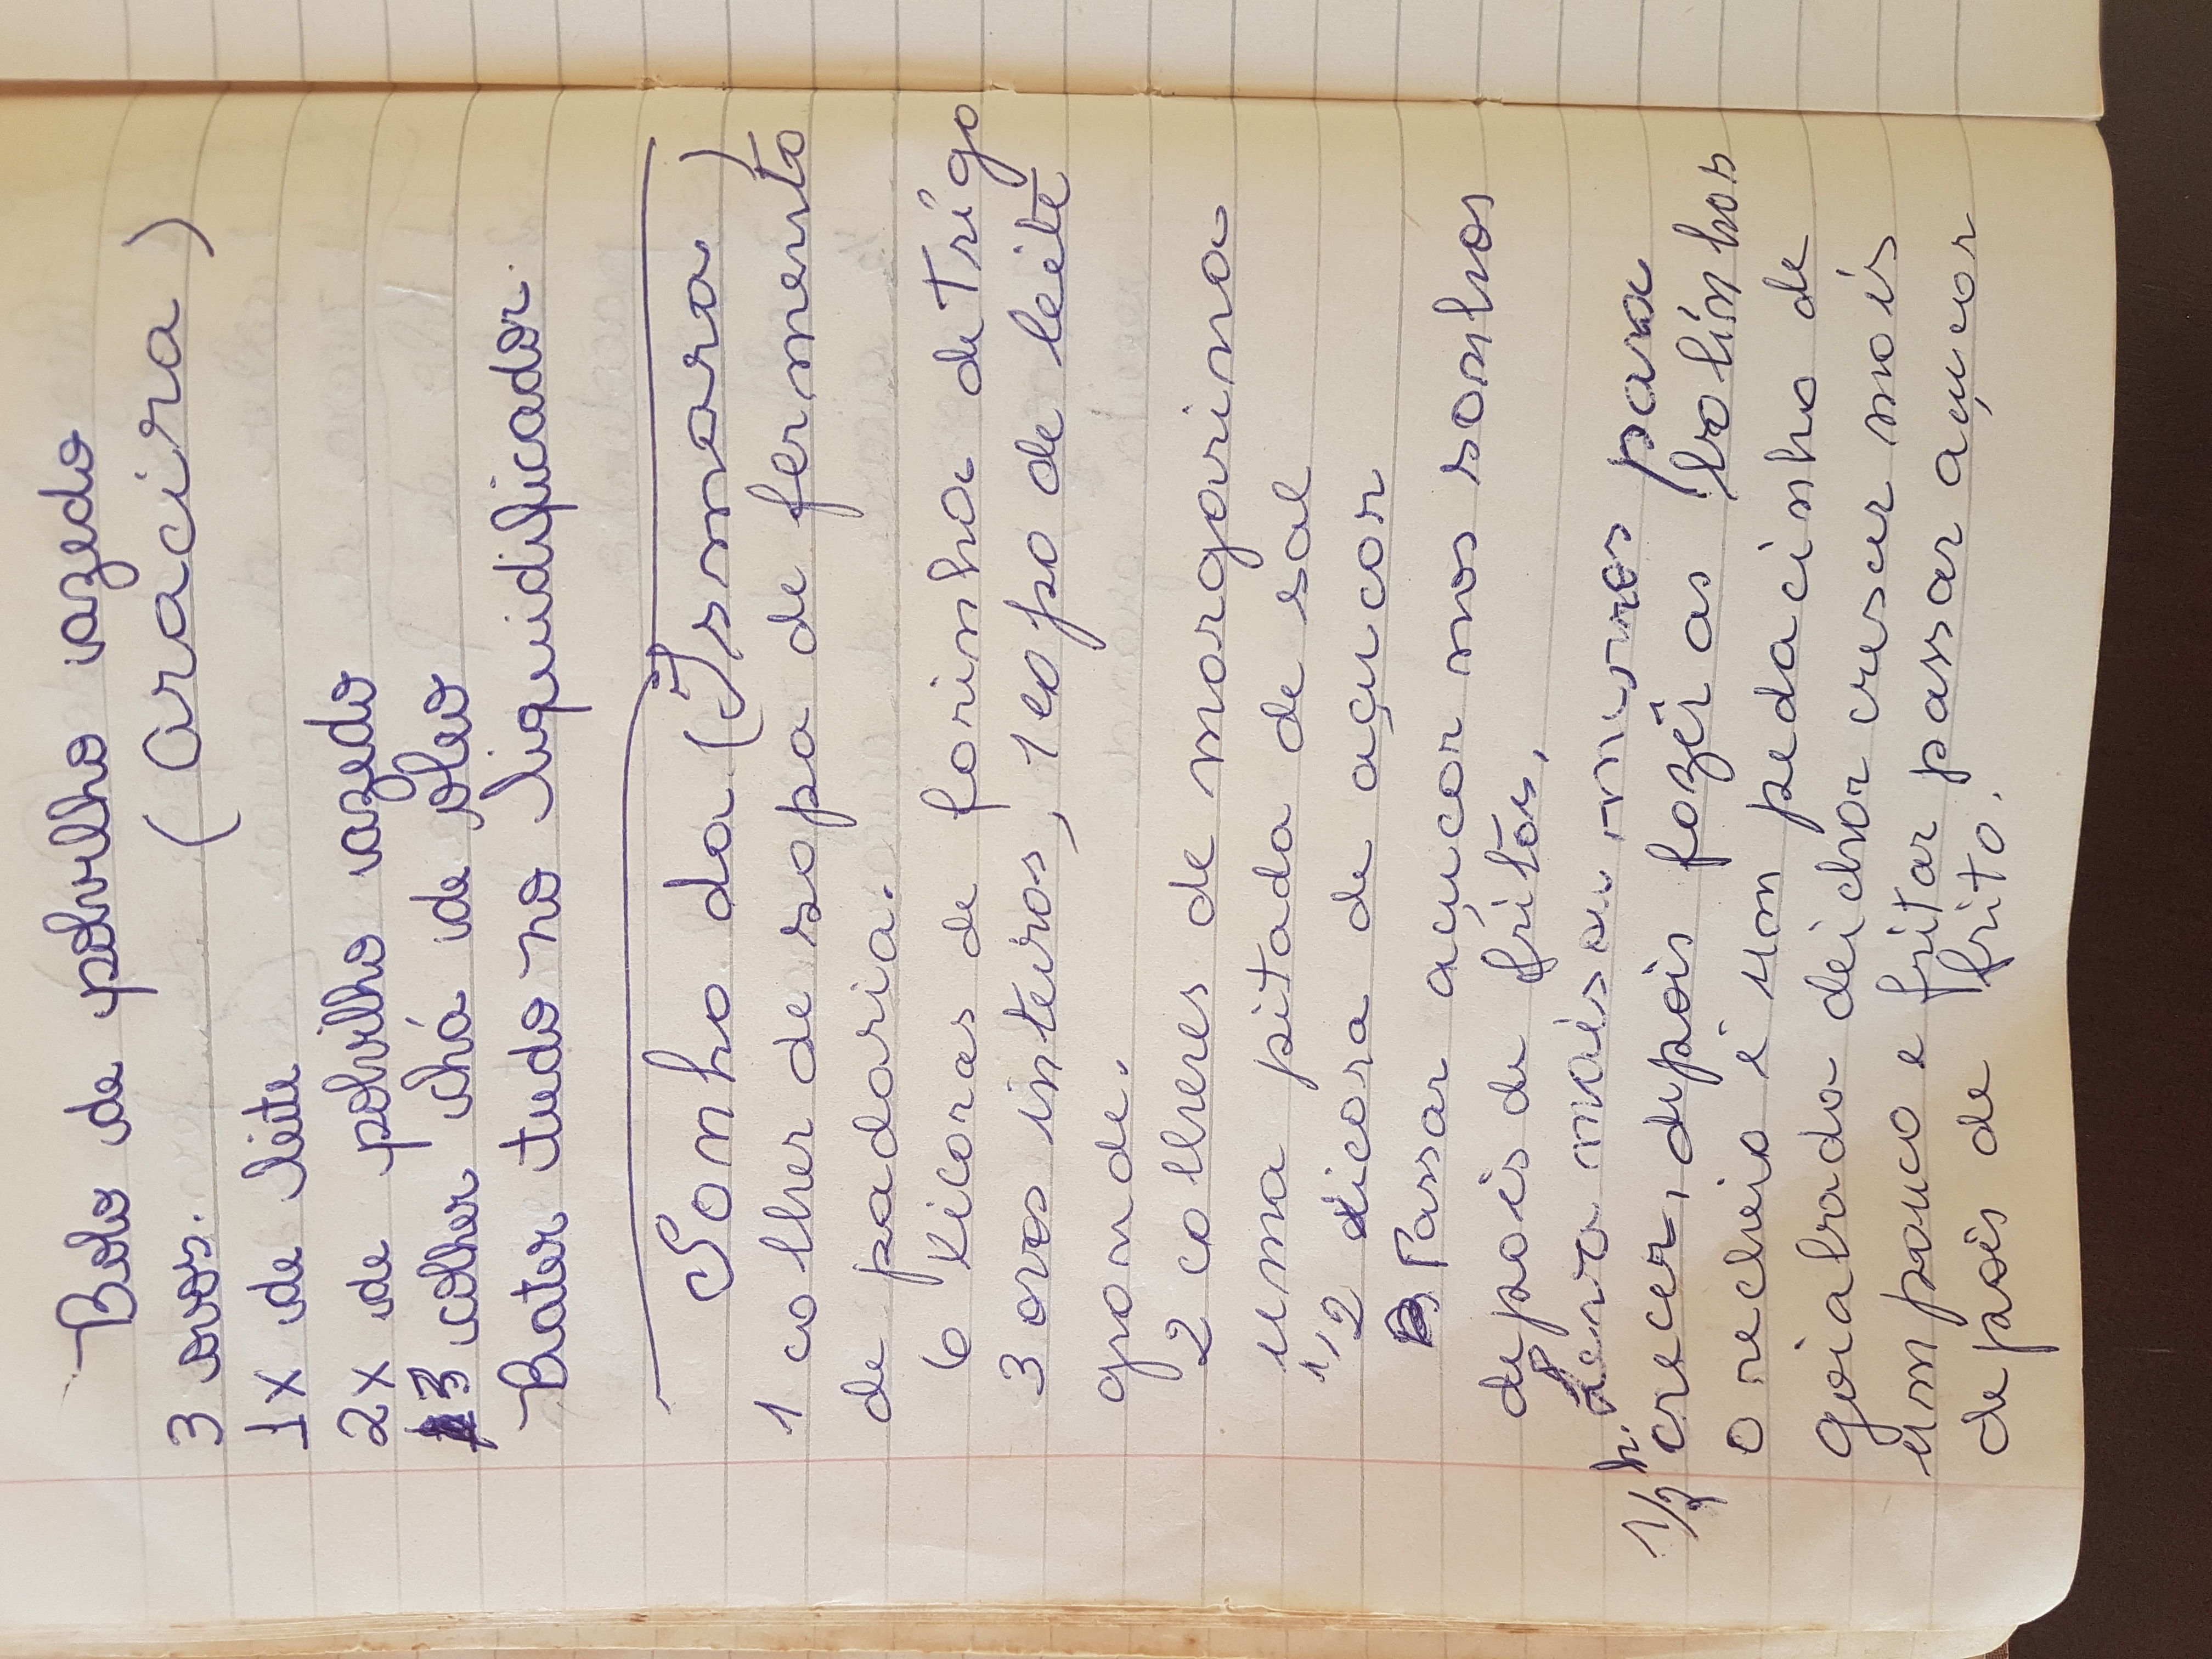 Bolo de polvilho azedo
(Aracira)
3 ovos.
1x de leite
2x de polvilho azedo
3 colher chá de oleo
Bater tudo no liquidificador.
Sonho da (Ismara)
1 colher de sopa de fermento
de padaria.
6 xicaras de farinha de Trigo
3 ovos inteiros, 1 copo de leite
grande.
2 colheres de margarina
uma pitada de sal
1/2 xicara de açucar
Passar açucar nos sonhos
depois de fritos,
Leva mais ou menos para
1/2 h. crecer, depois fazer as bolinhos
o recheio é um pedacinho de
goiabada deichar crescer mais
um pouco e fritar passar açucar
depois de frito.